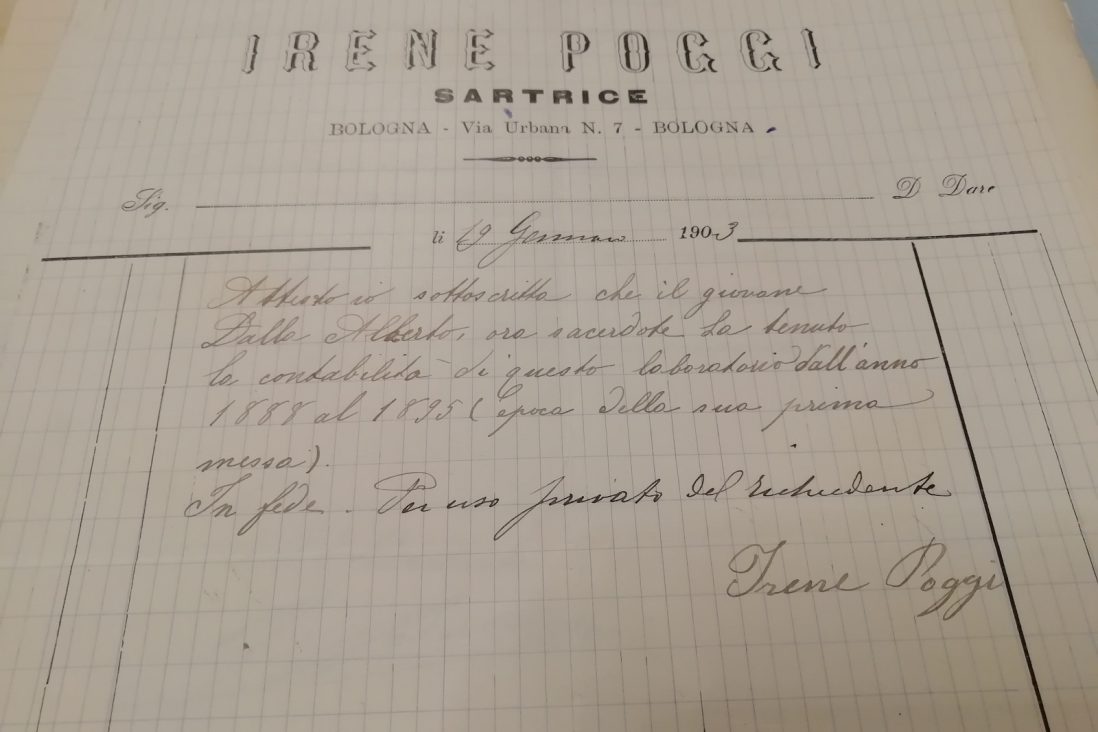 IRENE POGGI
SARTRICE
BOLOGNA - Via Urbana N. 7 - BOLOGNA
Sig. D Dare
li 19 Gennaio 1903
Attesto io sottoscritta che il giovane
Dalla Alberto, ora sacerdote ha tenuto
la contabilità di questo laboratorio dall'anno
1888 al 1895 (epoca della sua prima
messa).
In fede. Per uso privato del richiedente
Irene Poggi